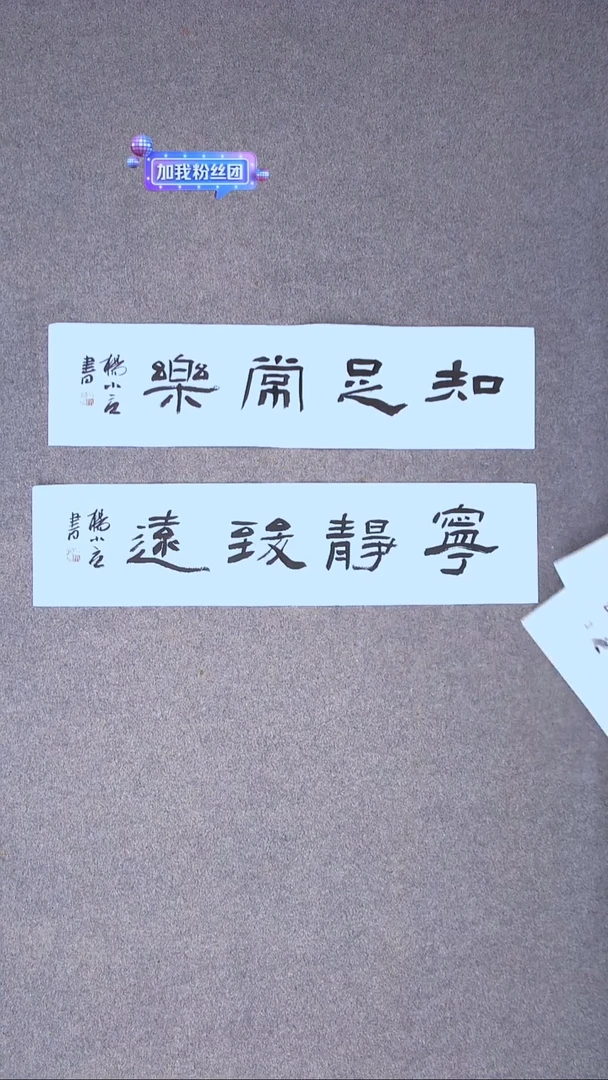 加我粉丝团
知足常樂
楊小立
書
寧靜致遠
楊小立
書